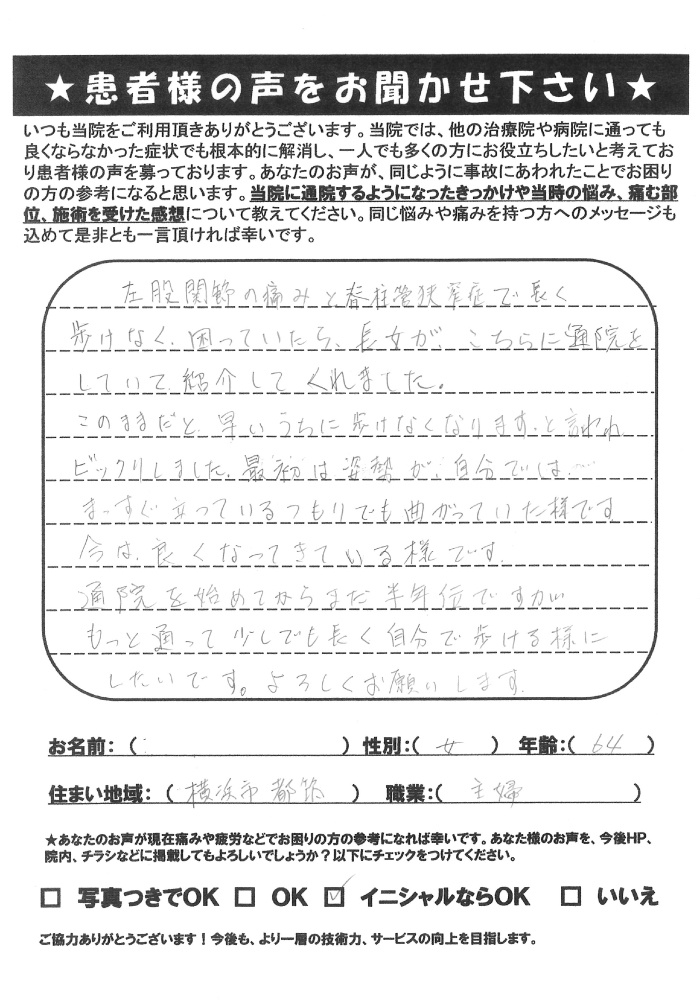 ★患者様の声をお聞かせ下さい★
いつも当院をご利用頂きありがとうございます。当院では、他の治療院や病院に通っても
良くならなかった症状でも根本的に解消し、一人でも多くの方にお役立ちしたいと考えてお
り患者様の声を募っております。あなたのお声が、同じように事故にあわれたことでお困り
の方の参考になると思います。当院に通院するようになったきっかけや当時の悩み、痛む部
位、施術を受けた感想について教えてください。同じ悩みや痛みを持つ方へのメッセージも
込めて是非とも一言頂ければ幸いです。
左股関節の痛みと脊柱管狭窄症で長く
歩けなく、困っていたら、長女が、こちらに通院を
していて、紹介してくれました。
このままだと、早いうちに歩けなくなります。と言われ
ビックリしました。最初は姿勢が、自分では…
まっすぐ立っているつもりでも曲がっていた様です
今は、良くなってきている様です。
通院を始めてからまだ半年位ですが
もっと通って少しでも長く自分で歩ける様に
したいです。よろしくお願いします。
お名前：（　）性別：（女）年齢：（64）
住まい地域：（横浜市都筑）職業：（主婦）
★あなたのお声が現在痛みや疲労などでお困りの方の参考になれば幸いです。あなた様のお声を、今後HP、
院内、チラシなどに掲載してもよろしいでしょうか？以下にチェックをつけてください。
□ 写真つきでOK □ OK ☑ イニシャルならOK □ いいえ
ご協力ありがとうございます！今後も、より一層の技術力、サービスの向上を目指します。